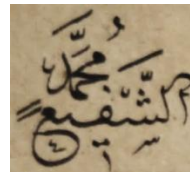 مُحَمَّد
الشَّفِيع
٤